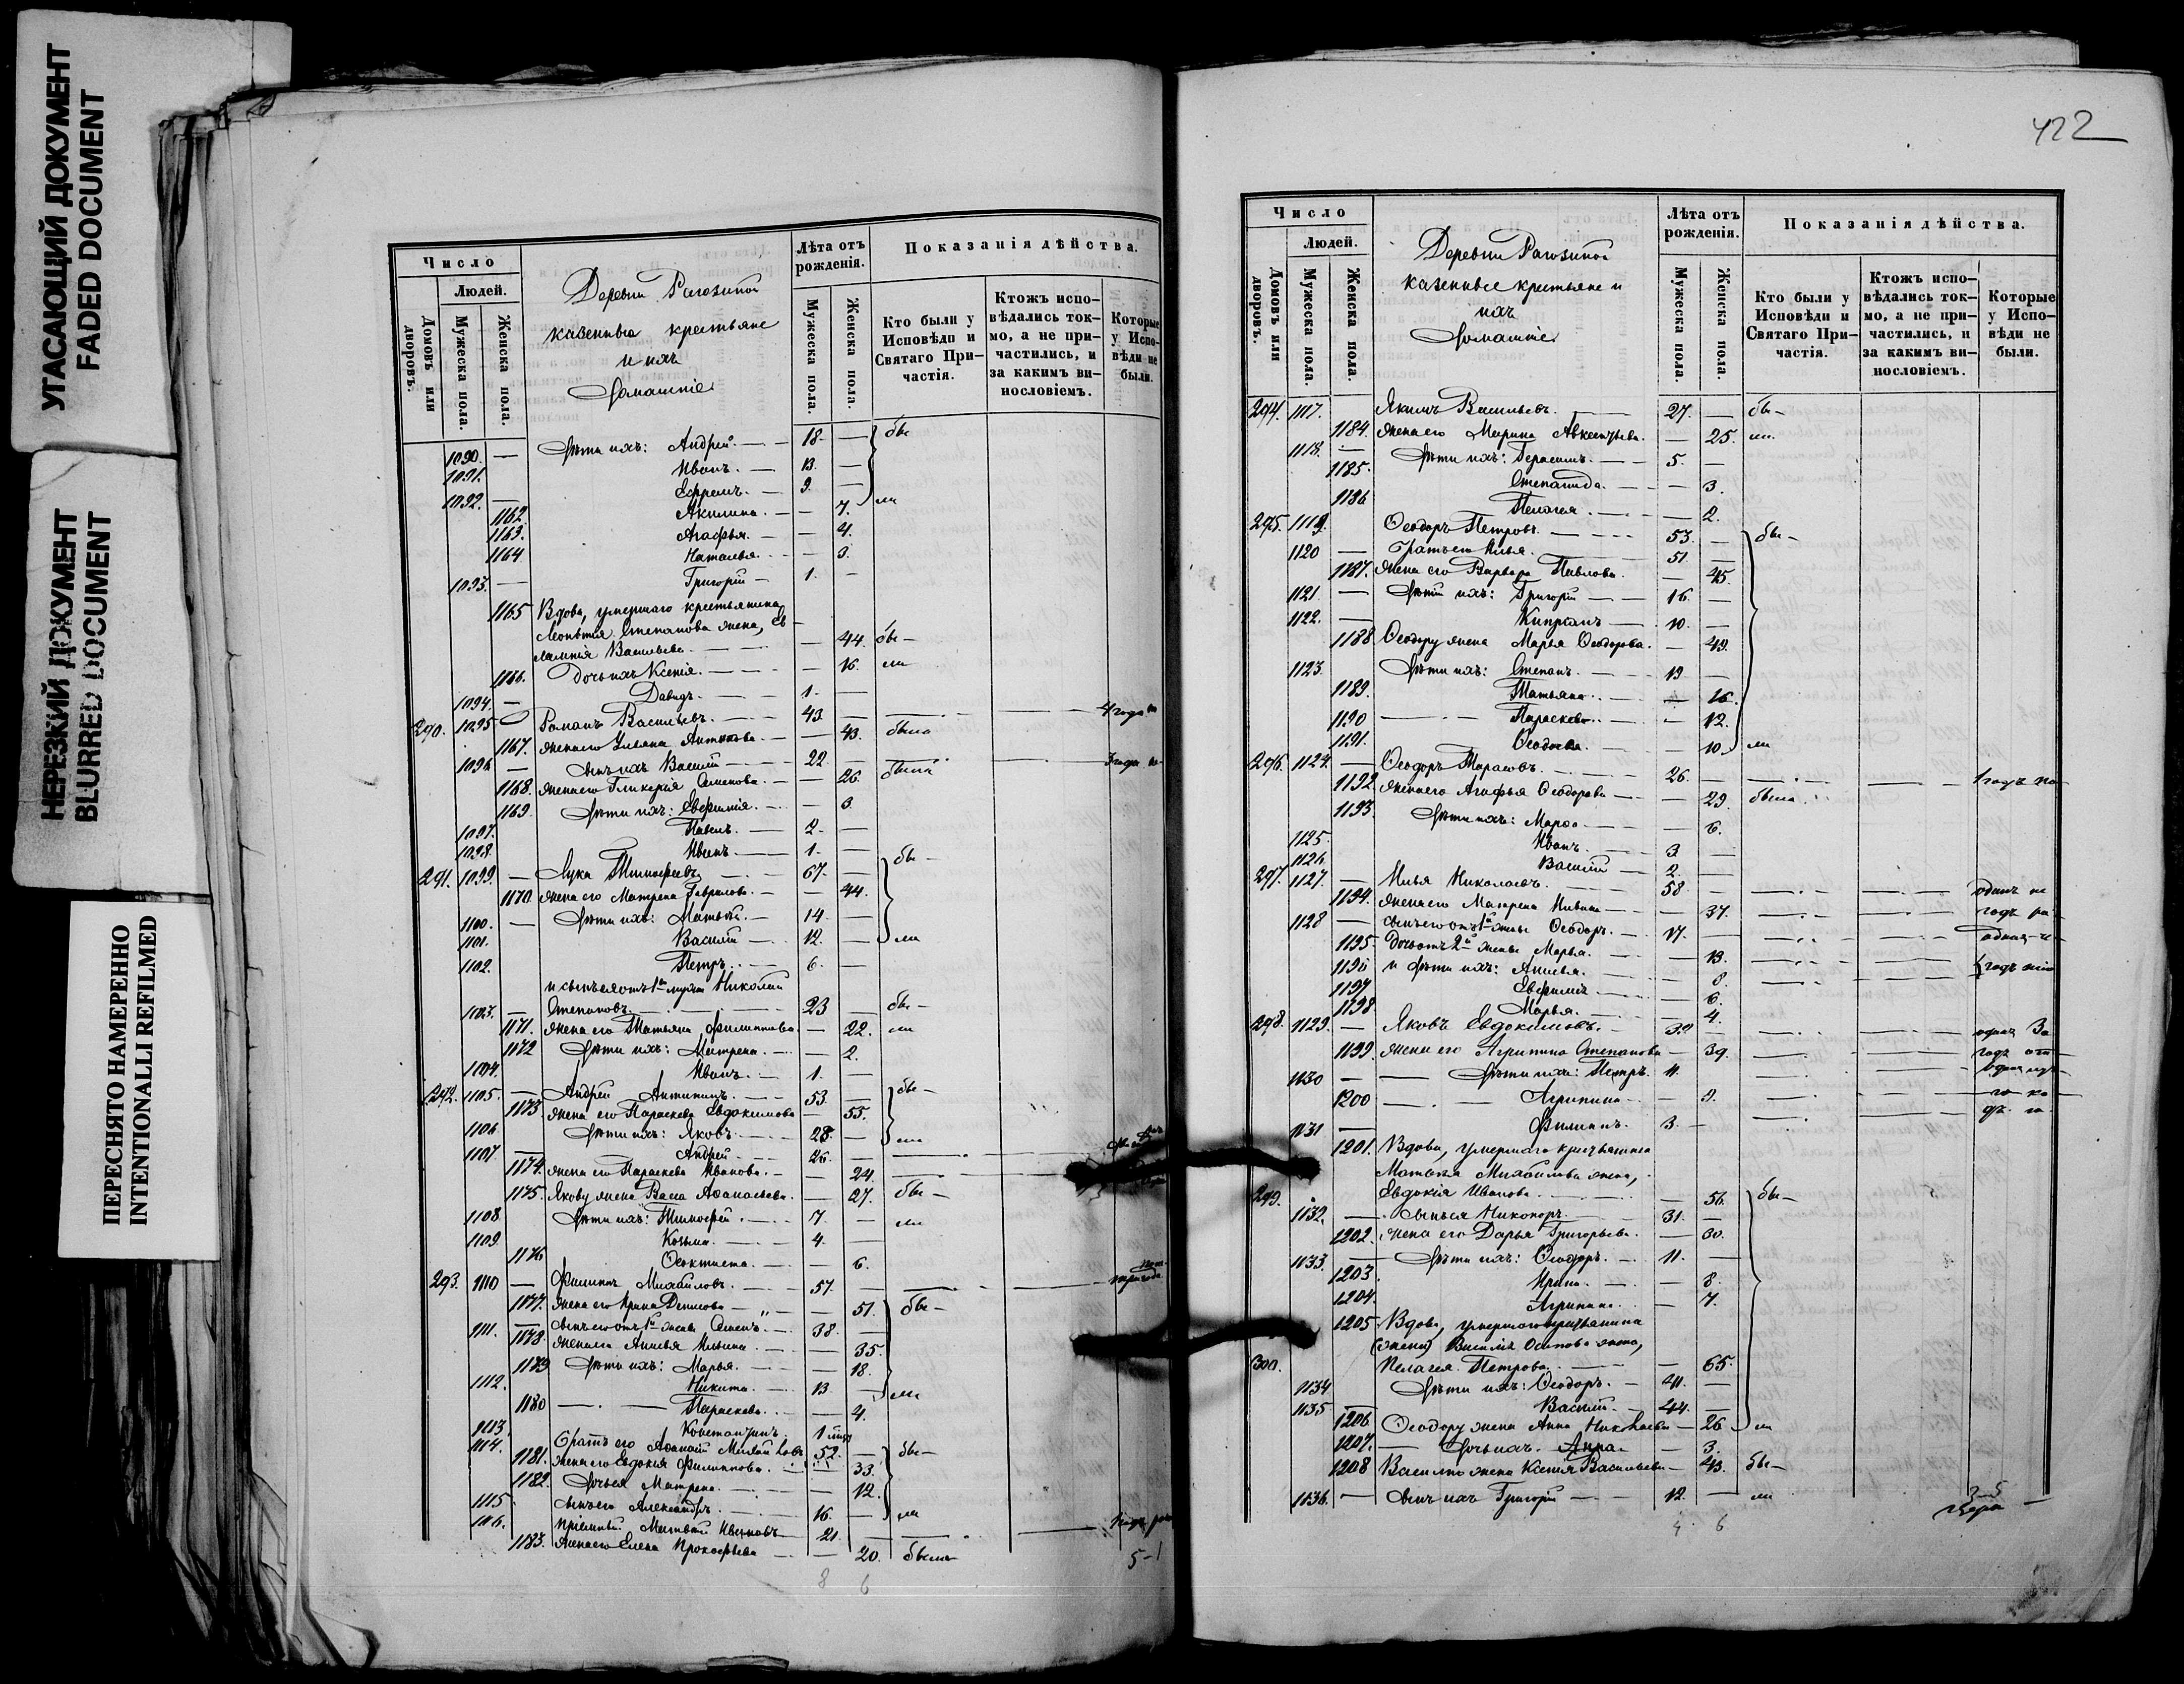 УГАСАЮЩИЙ ДОКУМЕНТ
FADED DOCUMENT
НЕРЕЗКИЙ ДОКУМЕНТ
BLURRED DOCUMENT
ПЕРЕСНЯТО НАМЕРЕННО
INTENTIONALLI REFILMED
Число
Людей.
Домовъ или дворовъ.
Мужеска пола.
Женска пола.
Деревни
казенные крестьяне
и ихъ
домашніе
Лѣта отъ рожденія.
Мужеска пола.
Женска пола.
Показанія дѣйства.
Кто были у Исповѣди и Святаго Причастія.
Ктожъ исповѣдались токмо, а не причастились, и за какимъ винословіемъ.
Которые у Исповѣди не были.
1090. — дѣти ихъ: Андрей — 18. — бы
1091. Иванъ. — 13. —
1092. — Ефремъ. — 9. —
1162. Акилина. — — 7. ли
1163. Агафья. — — 4.
1164 Наталья. — — 3.
1093. — Григорій — 1. —
1165 Вдова, умершаго крестьянина
Леонтія Степанова жена,
Васильева. — — 44. бы —
1166. Дочь ихъ Ксенія. — — 16. ли
1094. — Давидъ. — 1. —
290. 1095 Романъ Васильевъ. — 43. — 4 года
1167. жена его Ульяна — — 43. была
1096 — сынъ ихъ Василій — 22. — 3 года
1168. жена его Гликерія Семенова. — — 26. была
1169. дѣти ихъ: Евфимія. — — 3.
1097. Павелъ. — 2. —
1098. Иванъ. — 1. —
291. 1099. — Лука Тимофеевъ — 67. — бы —
1170. жена его Матрена Гаврилова. — — 44.
1100. — дѣти ихъ: Матвѣй. — 14. —
1101. Василій — 12. — ли
1102. Петръ. — 6. —
и сынъ ея отъ 1го мужа Николай
1103. — Степановъ. — 23 — бы —
1171. жена его Татьяна Филиппова. — 22. ли
1172 дѣти ихъ: Матрена. — — 2.
1104. Иванъ. — 1. —
292. 1105. — Андрей Антипинъ. — 53 — бы —
1173 жена его Параскева Евдокимова — 55.
1106 дѣти ихъ: Яковъ. — 28. — ли
1107 — Андрей — 26. —
1174. жена его Параскева Иванова. — — 24.
1175. Якову жена Васа Афанасьева. — 27. бы —
1108 дѣти ихъ: Тимофей. — 7. — ли
1109 Козьма. — 4. —
1176 Феоктиста. — — 6.
293. 1110 — Филиппъ Михайловъ. — 57. —
1177. жена его Ирина Денисова — — 51. бы —
1111. — сынъ его отъ 1й жены Семенъ. — 38. —
1178. жена его Анисья Ильина. — — 35.
1179 дѣти ихъ: Марья. — — 18.
1112. Никита. — 13 — ли
1180 — — Параскева. — — 4.
1113. Константинъ. 1
1114. братъ его Афанасій Михайловъ 52. — бы —
1181. жена его Евдокія Филиппова. — — 33.
1182. дочь ея Матрена. — — 12.
1115 сынъ его Александръ. — 16. — ли
1116. пріемный Матвѣй Ивановъ — 21. —
1183. жена его Елена Прокофьева — — 20. была
5-1
8 6
422
Число
Людей.
Домовъ или дворовъ.
Мужеска пола.
Женска пола.
Деревни
казенные крестьяне и
ихъ
домашніе
Лѣта отъ рожденія.
Мужеска пола.
Женска пола.
Показанія дѣйства.
Кто были у Исповѣди и Святаго Причастія.
Ктожъ исповѣдались токмо, а не причастились, и за какимъ винословіемъ.
Которые у Исповѣди не были.
294. 1117. Якимъ Васильевъ. — 27. — бы —
1184. жена его Марина — 25. ли.
1118. — дѣти ихъ: Герасимъ. — 5. —
1185. Степанида. — — 3.
1186 Пелагея. — — 2.
295. 1119. Феодоръ Петровъ. — 53. — бы —
1120 — братъ его Илья. — 51. —
1187. жена его Варвара Павлова. — 45.
1121. — дѣти ихъ: Григорій — 16. —
1122. — Кипріанъ — 10. —
1188 Феодору жена Марья Феодорова. — 49.
1123. дѣти ихъ: Степанъ. — 19 —
1189. Татьяна. — — 16.
1190 — Параскева. — — 12.
1191. Федосья. — — 10. ли
296. 1124. — Феодоръ Тарасовъ. — 26. — 1 годъ по
1192. жена его Агафья Феодорова — — 29. была
1193. дѣти ихъ: Марфа — — 6.
1125. Иванъ. — 3 —
1126 Василій — 2. —
297. 1127. — Илья Николаевъ. — 58 —
1194. жена его Матрена — — 37.
1128 — сынъ его отъ 1й жены Феодоръ. — 17. —
1195. дочь отъ 2й жены Марья. — — 13.
1196 и дѣти ихъ: Анисья. — — 8.
1197 Евфимія. — — 6.
1198 Марья. — — 4.
298. 1129. — Яковъ Евдокимовъ. — 39 —
1199. жена его Агрипина Степанова — 39.
1130 — — дѣти ихъ: Петръ. 11. —
1200 — Агрипина. — 9.
1131 — Филиппъ. 3. —
1201. Вдова, умершаго крестьянина
Матвѣя Михайлова жена,
299. Евдокія Иванова. — — 56. бы —
1132. — сынъ ея Никаноръ. — 31. —
1202. жена его Дарья Григорьева. — 30.
1133. — дѣти ихъ: Феодоръ. — 11. —
1203. Ирина. — — 8.
1204. Агрипина. — 7.
1205 Вдова, умершаго крестьянина
(жена) Василія Осипова жена,
300. Пелагея Петрова. — — 65.
1134 дѣти ихъ: Феодоръ. — 41. —
1135 — Василій. — 44. —
1206. Феодору жена Анна Николаева — 26 ли
1207. — дочь ихъ Анна — — 3.
1208 Василію жена Ксенія Васильева — 43. бы —
1136. — сынъ ихъ Григорій — 12. — ли
4 6